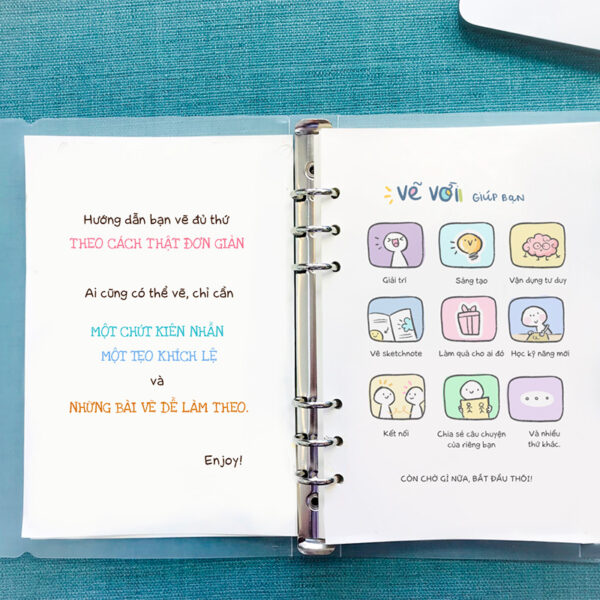 Hướng dẫn bạn vẽ đủ thứ
THEO CÁCH THẬT ĐƠN GIẢN
Ai cũng có thể vẽ, chỉ cần
MỘT CHÚT KIÊN NHẪN
MỘT TẸO KHÍCH LỆ
và
NHỮNG BÀI VẼ DỄ LÀM THEO.
Enjoy!
Vẽ Vời GIÚP BẠN
Giải trí
Sáng tạo
Vận dụng tư duy
Vẽ sketchnote
Làm quà cho ai đó
Học kỹ năng mới
Kết nối
Chia sẻ câu chuyện
của riêng bạn
Và nhiều
thứ khác.
CÒN CHỜ GÌ NỮA, BẮT ĐẦU THÔI!